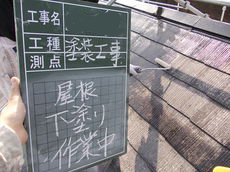 工事名
工種 塗装工事
測点
屋根
下塗り
作業中